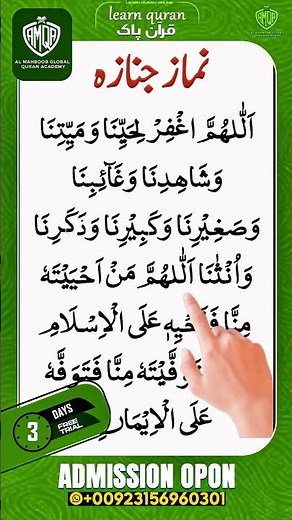 LEARN QURAN ONLINE
learn quran
قرآن پاک
AMQA
AL MAHBOOB GLOBAL
QURAN ACADEMY
نماز جنازہ
اَللّٰهُمَّ اغْفِرْ لِحَيِّنَا وَ مَيِّتِنَا
وَشَاهِدِنَا وَ غَآئِبِنَا
وَصَغِيْرِنَا وَكَبِيْرِنَا وَذَكَرِنَا
وَاُنْثٰنَا اَللّٰهُمَّ مَنْ اَحْيَيْتَهٗ
مِنَّا فَاَحْيِهٖ عَلَى الْاِسْلَامِ
تَوَفَّيْتَهٗ مِنَّا فَتَوَفَّهٗ
عَلَى الْاِيْمَانِ
3 DAYS
FREE TRIAL
ADMISSION OPON
+00923156960301